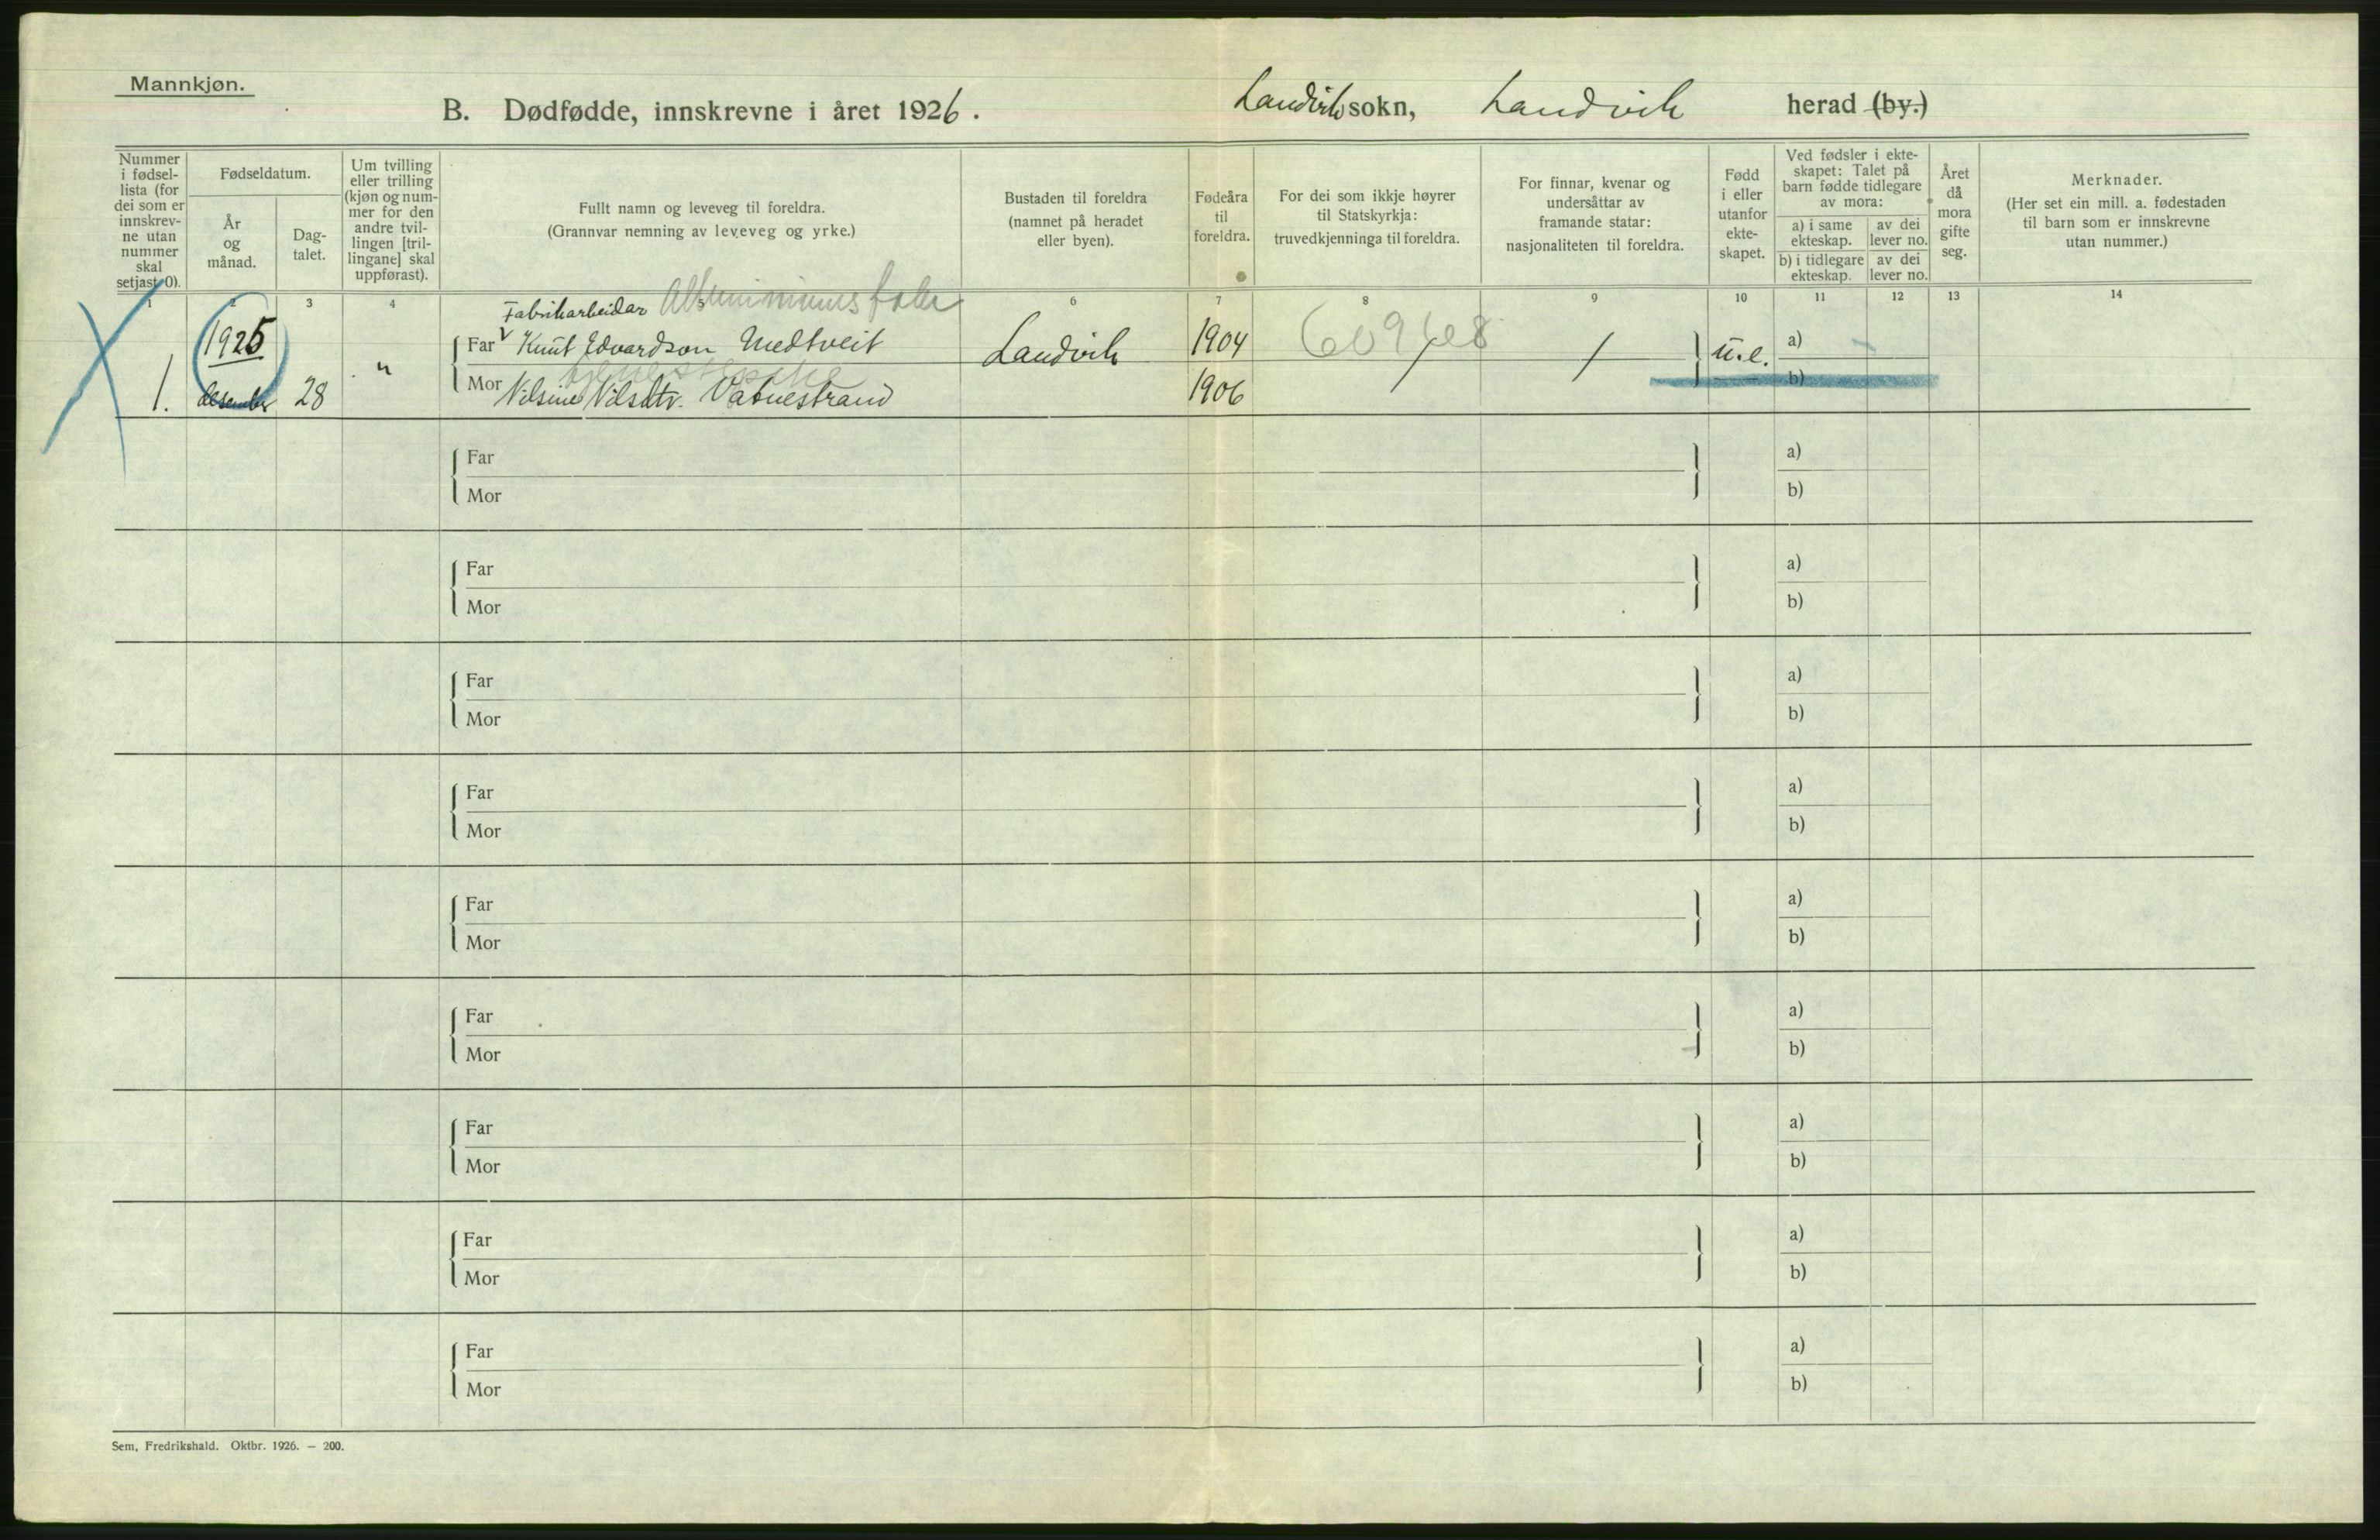 Mannkjøn.
B. Dødfødde, innskrevne i året 1926. Landvik sokn, Landvik herad (by.)
Nummer i fødsel-lista (for dei som er innskrev-ne utan nummer skal setjast 0).
Fødseldatum.
År og månad.
Dag-talet.
Um tvilling eller trilling (kjøn og num-mer for den andre tvil-lingen [tril-lingane] skal uppførast).
Fullt namn og leveveg til foreldra.
(Grannvar nemning av leveveg og yrke.)
Bustaden til foreldra (namnet på heradet eller byen).
Fødeåra til foreldra.
For dei som ikkje høyrer til Statskyrkja: truvedkjenninga til foreldra.
For finnar, kvenar og undersåttar av framande statar: nasjonaliteten til foreldra.
Fødd i eller utanfor ekte-skapet.
Ved fødsler i ekte-skapet: Talet på barn fødde tidlegare av mora:
a) i same ekteskap. av dei lever no.
b) i tidlegare ekteskap. av dei lever no.
Året då mora gifte seg.
Merknader.
(Her set ein mill. a. fødestaden til barn som er innskrevne utan nummer.)
1 2 3 4 5 6 7 8 9 10 11 12 13 14
Fabrikarbeidar Alluminiumsfabr
1925 Far Knut Edvardson Medtveit Landvik 1904 u.e. a) -
1. desember 28 " Mor Nilsine Nilsdtr. Vatnestrand 1906 b)
Far a)
Mor b)
Far a)
Mor b)
Far a)
Mor b)
Far a)
Mor b)
Far a)
Mor b)
Far a)
Mor b)
Far a)
Mor b)
Far a)
Mor b)
Far a)
Mor b)
Sem, Fredrikshald. Oktbr. 1926. — 200.